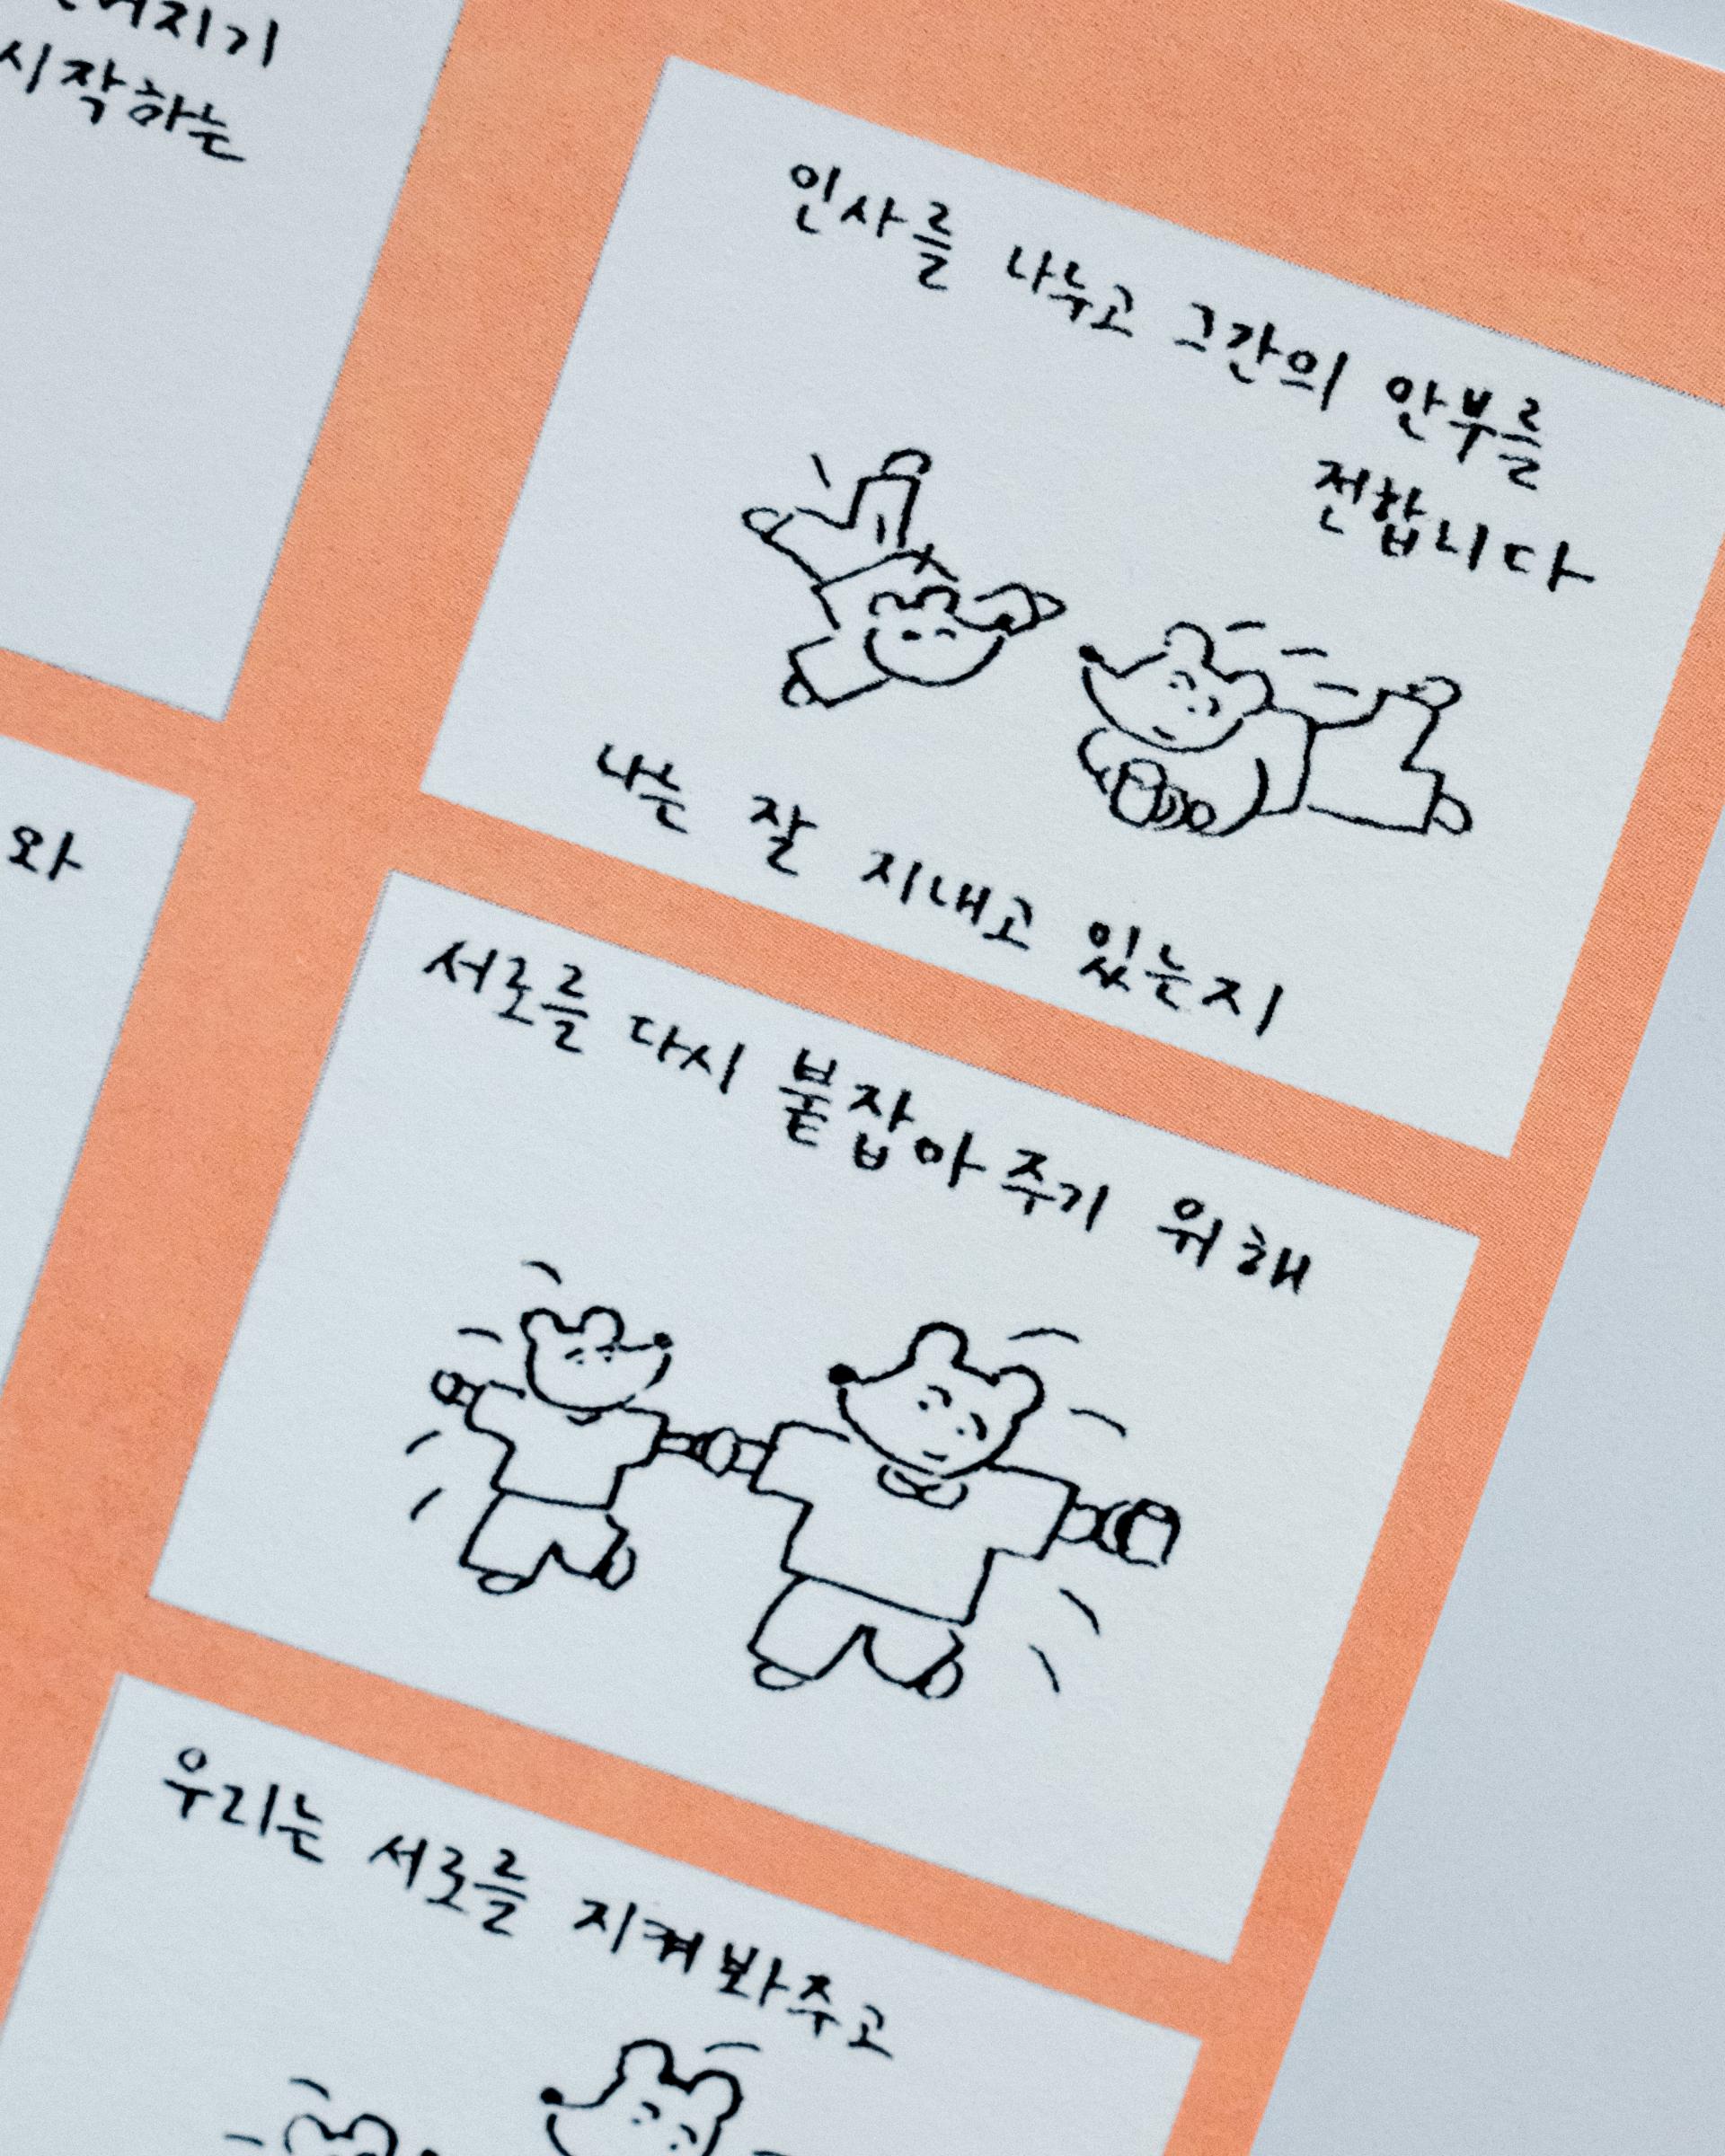 시작하는
와
인사를 나누고 그간의 안부를
전합니다
나는 잘 지내고 있는지
서로를 다시 붙잡아 주기 위해
우리는 서로를 지켜봐주고